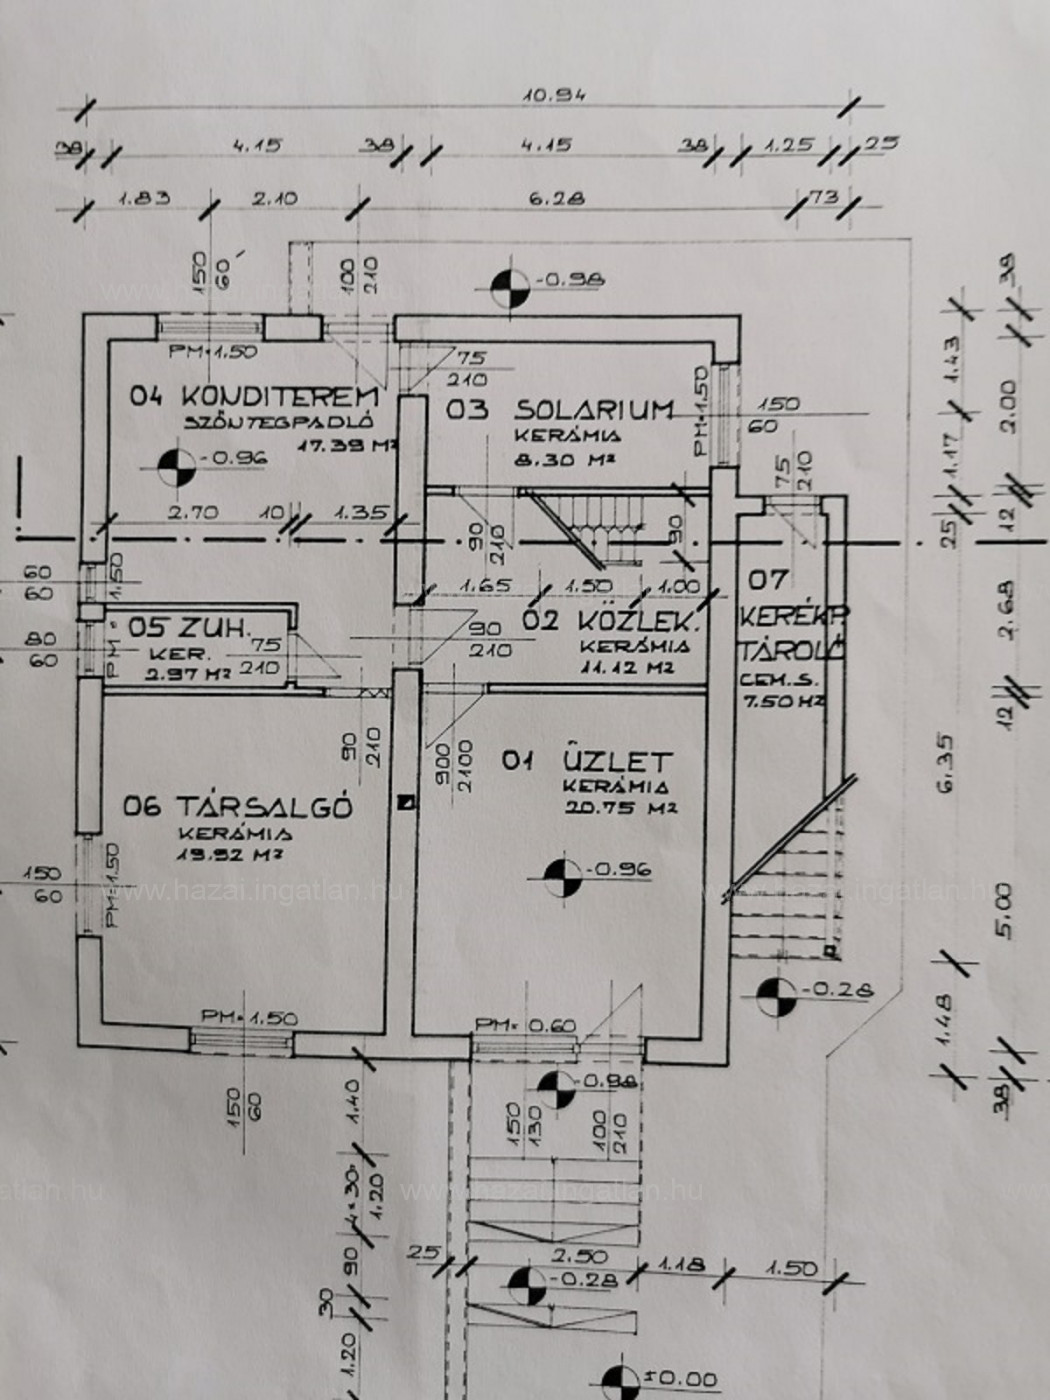 10.94
38 4.15 38 4.15 38 1.25 25
1.83 2.10 6.28 73
150
60
100
210
-0.98
PM=1.50
75
210
04 KONDITEREM
SZŐNYEGPADLÓ
17.39 M²
-0.96
03 SOLARIUM
KERÁMIA
8.30 M²
PM=1.50
150
60
75
210
38
1.43
2.00
1.17
25
12
2.70 10 1.35
90
210
90
60
60
1.50
1.65 1.50 1.00
07
KERÉKP.
TÁROLÓ
CEM.S.
7.50 M²
2.68
12
05 ZUH.
KER.
2.97 M²
75
210
80
60
PM=
90
210
02 KÖZLEK.
KERÁMIA
11.12 M²
90
210
900
2100
01 ÜZLET
KERÁMIA
20.75 M²
06 TÁRSALGÓ
KERÁMIA
19.92 M²
6.35
150
60
PM=1.50
-0.96
www.hazai.ingatlan.hu
www.hazai.ingatlan.hu
5.00
-0.28
1.48
38
PM=1.50
PM=0.60
150
60
-0.98
150
130
100
210
1.40
4×30=
1.20
www.hazai.ingatlan.hu
90
25 2.50 1.18 1.50
-0.28
30
1.20
±0.00